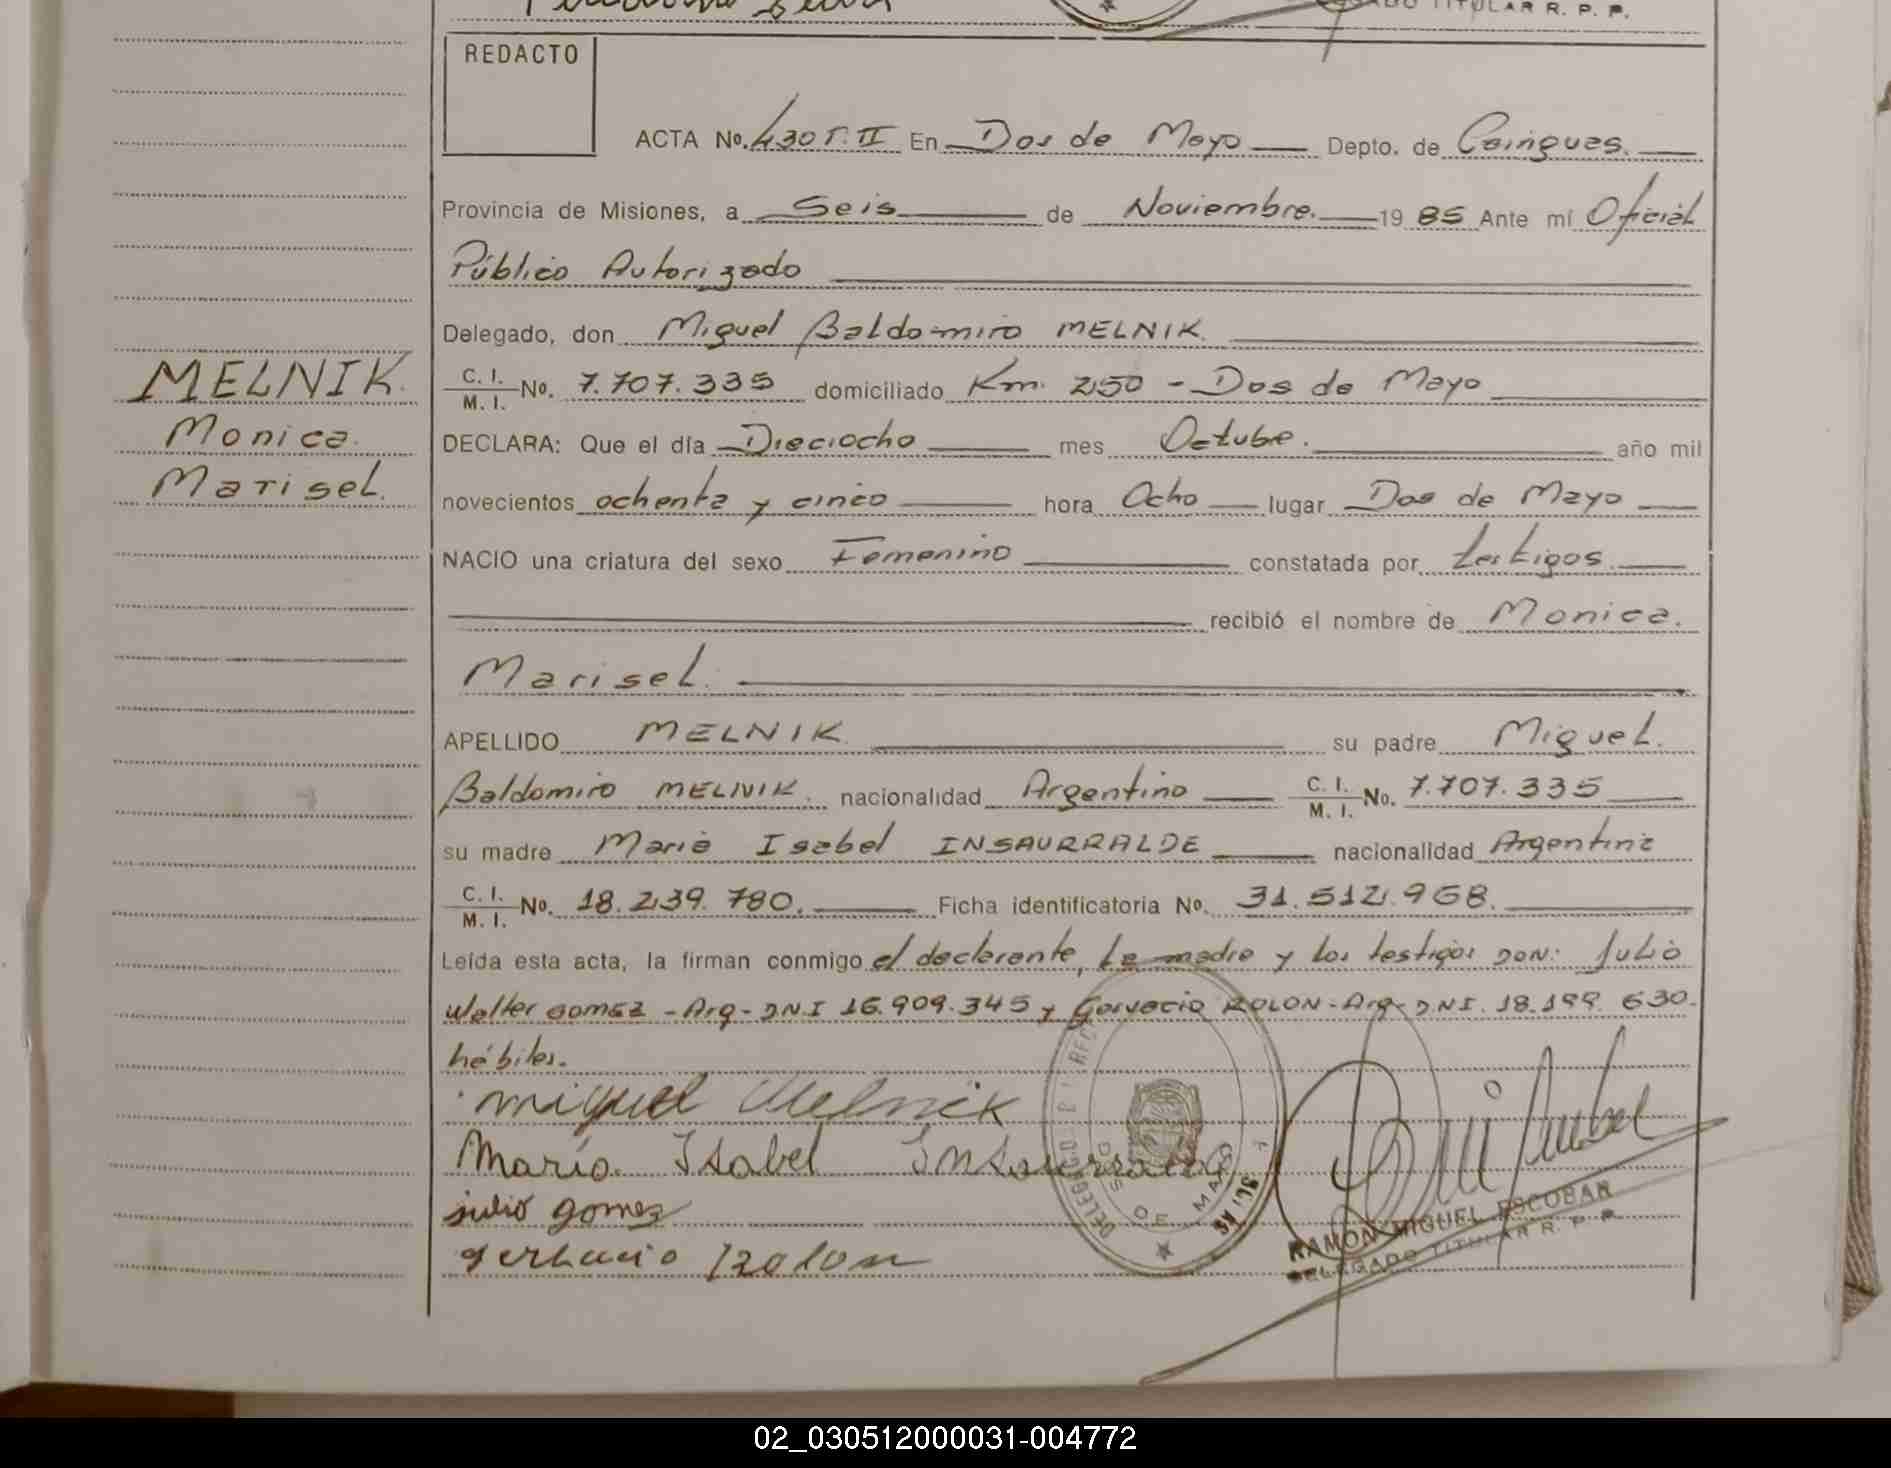 TITULAR R. P. P.
REDACTO
ACTA No. 430 T. II En Dos de Mayo Depto. de Cainguas.
Provincia de Misiones, a Seis de Noviembre. 19 85 Ante mí Oficial
Público Autorizado
Delegado, don Miguel Baldomiro MELNIK.
C. I. M. I. No. 7.707.335 domiciliado Km. 250 - Dos de Mayo
MELNIK.
Monica.
Marisel.
DECLARA: Que el día Dieciocho mes Octubre. año mil
novecientos ochenta y cinco hora Ocho lugar Dos de Mayo
NACIO una criatura del sexo Femenino constatada por testigos.
recibió el nombre de Monica.
Marisel.
APELLIDO MELNIK. su padre Miguel.
Baldomiro MELNIK. nacionalidad Argentino C. I. M. I. No. 7.707.335
su madre Maria Isabel INSAURRALDE nacionalidad Argentina
C. I. M. I. No. 18.239.780. Ficha identificatoria No. 31.512.968.
Leída esta acta, la firman conmigo el declarante, la madre y los testigos DON: Julio
Walter GOMEZ - Arg - D.N.I 16.909.345 y Gervacio ROLON - Arg - D.N.I. 18.199.630.
hábiles.
miguel Melnik
Maria Isabel Insaurralde
julio gomez
gerbacio Rolon
DOS DE MAYO
RAMON MIGUEL ESCOBAR
DELEGADO TITULAR R. P. P.
02_030512000031-004772